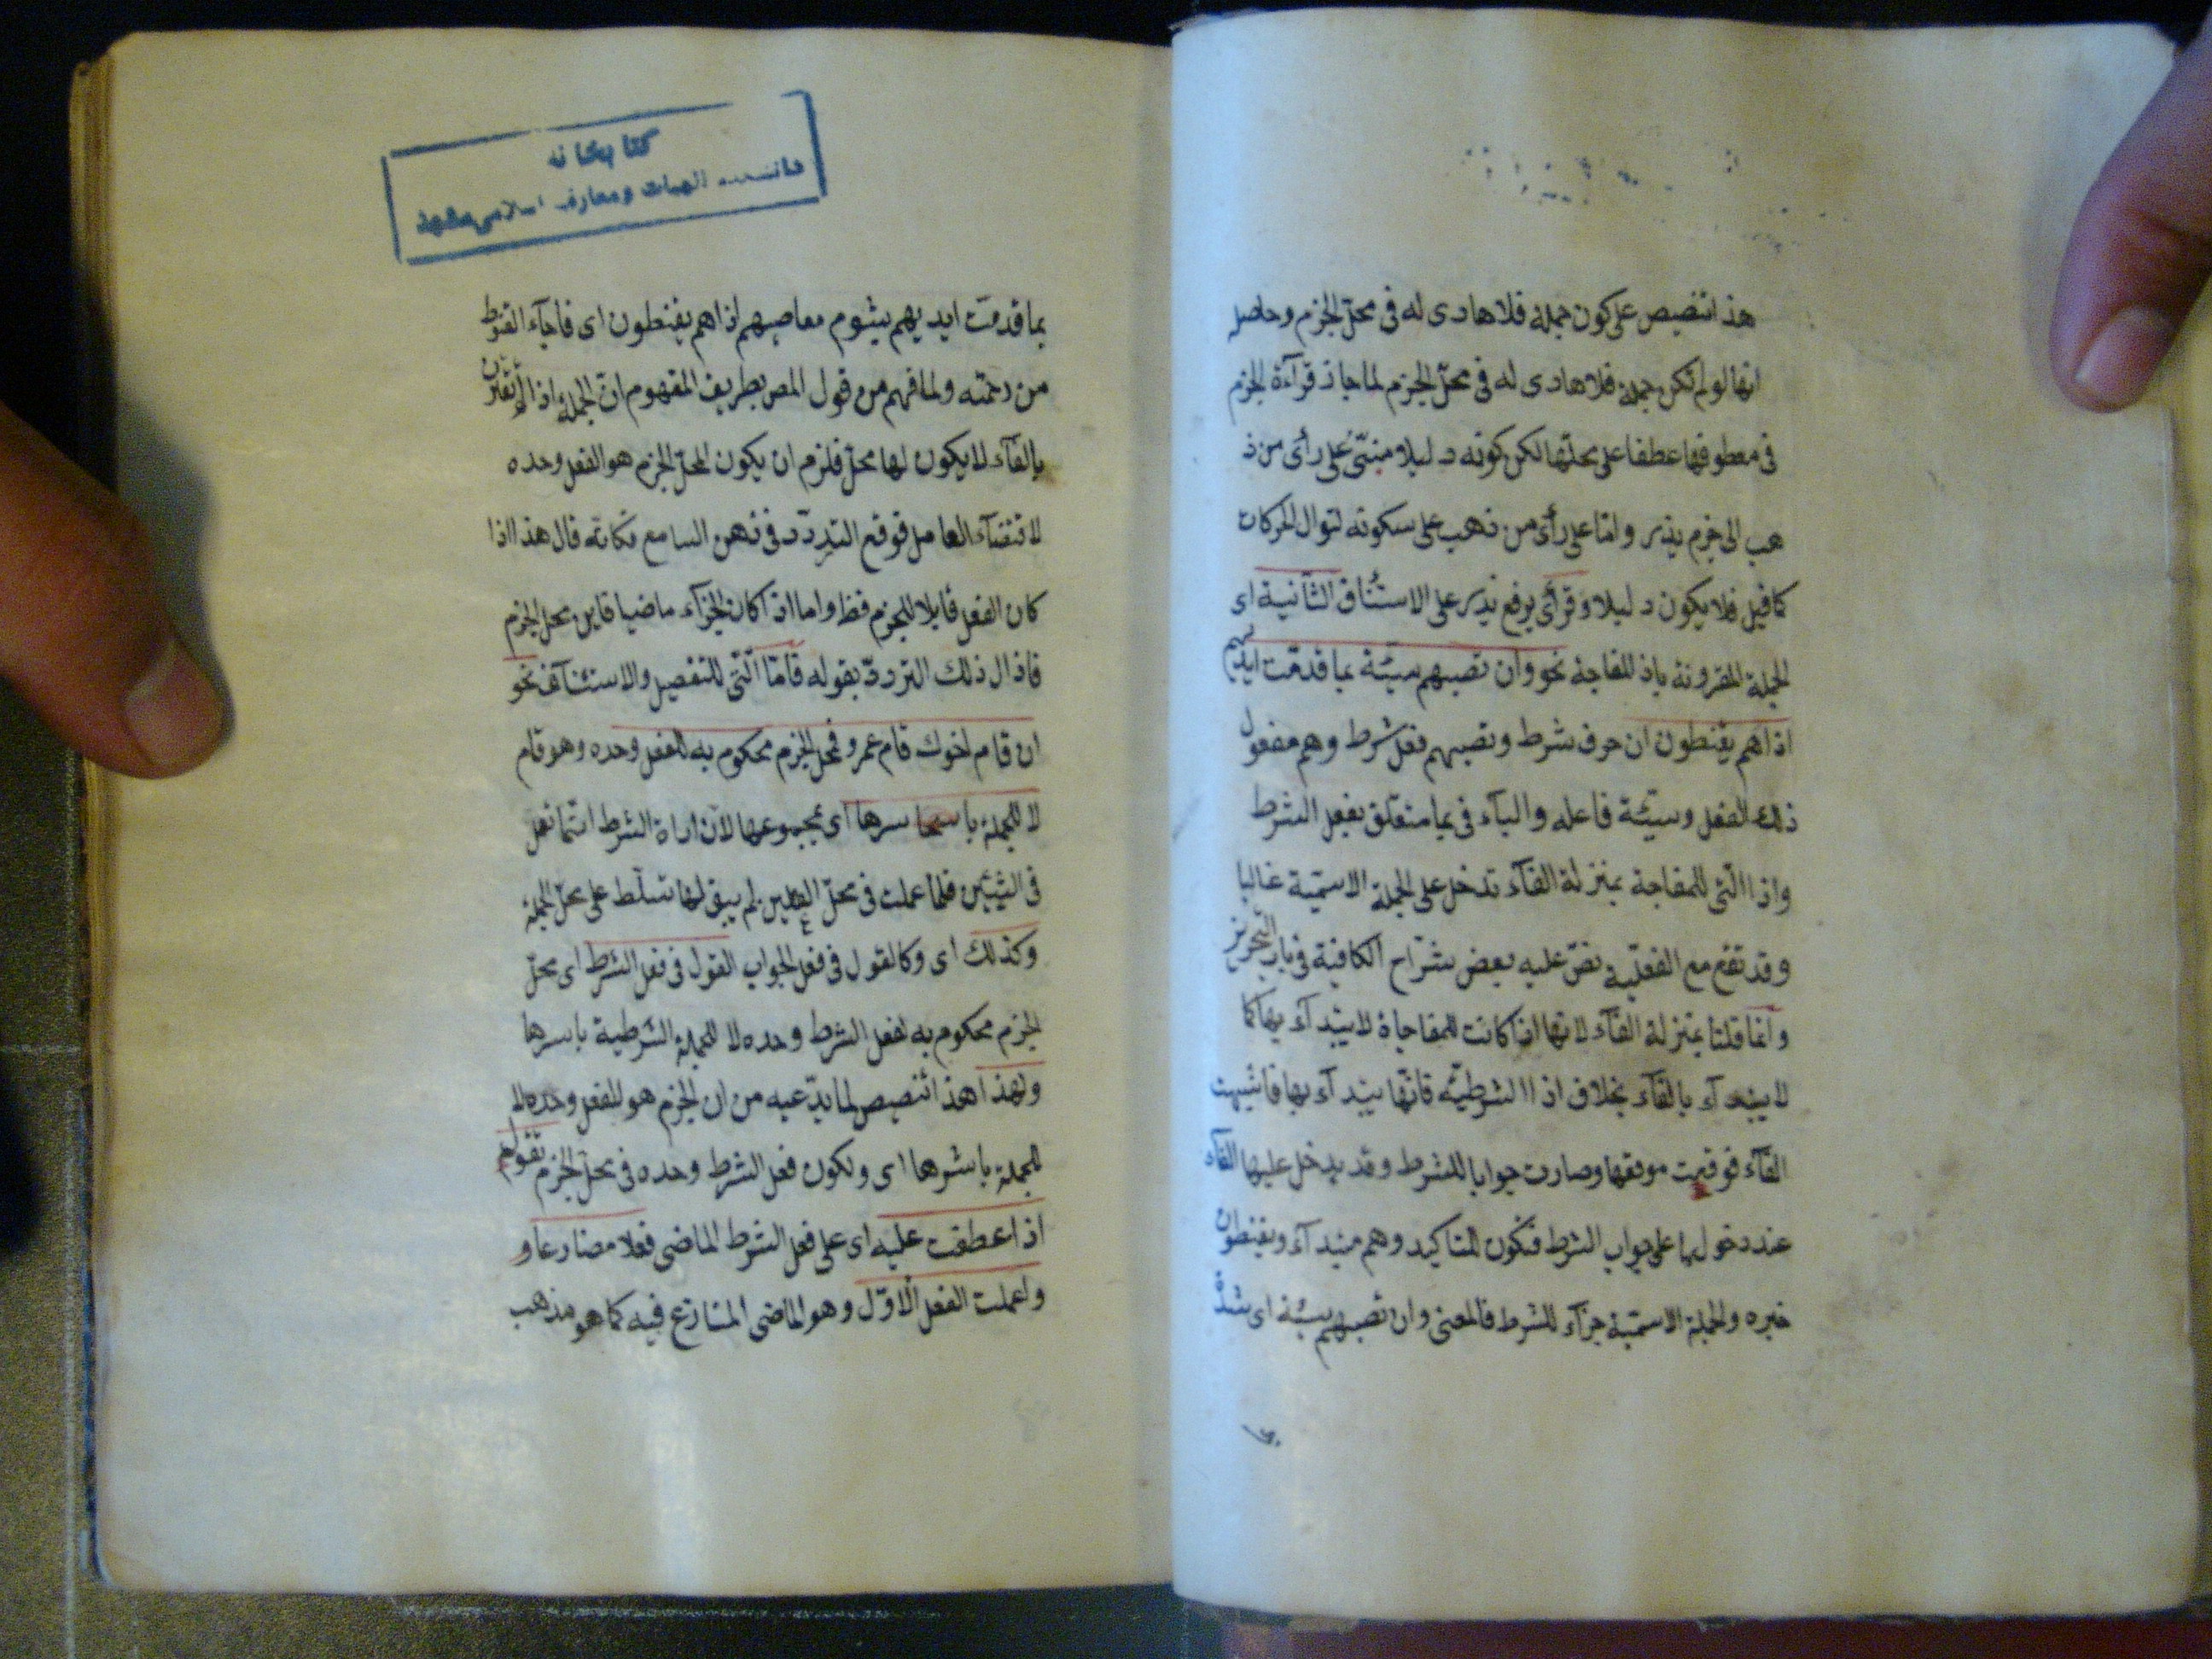 هذا تنصيص على كون جملة فلا هادى له فى محل الجزم وحاصل
انها لو لم تكن جملة فلا هادى له فى محل الجزم لما جاز قرآءة الجزم
فى معطوفها عطفا على محلها لكن كونه دليلا مبنىّ على رأى من ذ
هب الى جزم يذر واما على رأى من ذهب على سكونه لتوال الحركات
كما قيل فلا يكون دليلا وقرأى برفع يذر على الاستئناق الثانية اى
الجملة المقرونة باذ للفاجة نحو وان تصبهم سيئة بما قدمت ايديهم
اذا هم يقنطون ان حرف شرط وتصبهم فعل شرط وهم مفعول
ذلك الفعل وسيئة فاعله والبآء فى بما متعلق بفعل الشرط
واذا التى للمفاجة بمنزلة الفآء تدخل على الجملة الاسمية غالبا
وقد تقع مع الفعلية نص عليه بعض شراح الكافية فى باب
وانما قلنا بمنزلة الفآء لانها اذا كانت للمفاجاة لا يبتدآء بها كما
لا يبتدآء بالفآء بخلاف اذا الشرطية فانها يبتدآء بها فاشبهت
الفآء فوقعت موقعها وصارت جوابا للشرط وقد يدخل عليها الفآء
عند دخولها على جواب الشرط فتكون للتاكيد وهم مبتدآء ويقنطون
خبره والجملة الاسمية جزآء للشرط فالمعنى وان تصبهم سيئة اى شدة
كتابخانه
دانشكده الهيات ومعارف اسلامى مشهد
بما قدمت ايديهم بشوم معاصيهم اذا هم يقنطون اى فاجآء القنوط
من رحمته ولما فهم من قول المص بطريق المفهوم ان الجملة اذا لم تقترن
بالفآء لا يكون لها محل فلزم ان يكون المحل الجزم هو الفعل وحده
لاقتضآء العامل فوقع التردد فى ذهن السامع فكانه قال هذا اذا
كان الفعل قابلا للجزم فظ واما اذا كان الجزآء ماضيا فاين محل الجزم
فاذال ذلك التردد بقوله فاما التى للتفصيل والاستئناف نحو
ان قام اخوك قام عمرو فمحل الجزم محكوم به للفعل وحده وهو قام
لا للجملة باسرها اى بمجموعها لان اداة الشرط انما تعل
فى الشيئين فلما عملت فى محل الفعلين لم يبق لها تسلط على محل الجملة
وكذلك اى وكالقول فى فعل الجواب القول فى فعل الشرط اى محل
الجزم محكوم به لفعل الشرط وحده لا للجملة الشرطية باسرها
ولهذا هذا تنصيص لما يدعيه من ان الجزم هو للفعل وحده لا
للجملة باسرها اى ولكون فعل الشرط وحده فى محل الجزم تقول
اذا عطفت عليه اى على فعل الشرط الماضى فعلا مضارعا و
واعملت الفعل الاول وهو الماضى المتنازع فيه كما هو مذهب